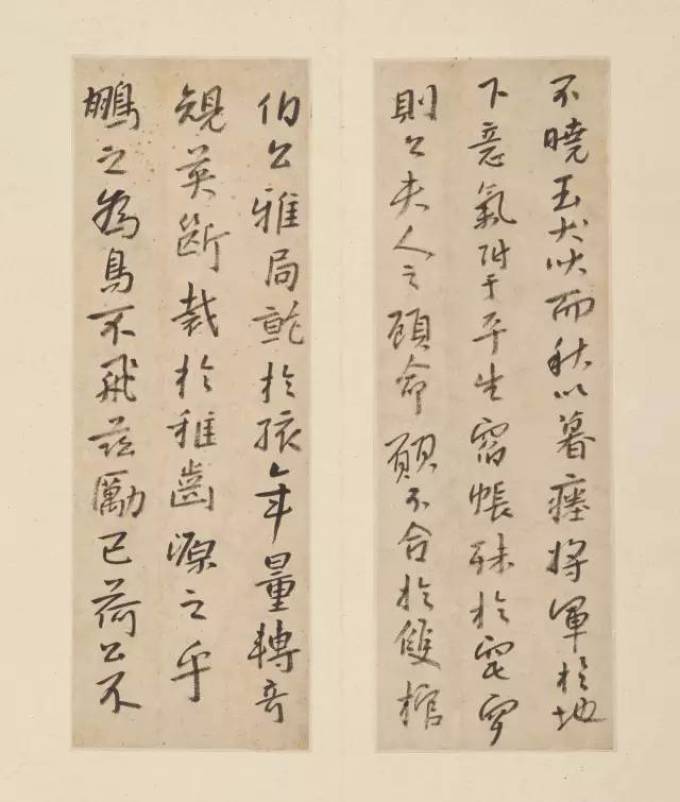 不曉玉犬吠而秋以暮瘞將軍於地
下意氣附于平生窅帳殊於窀穸
則公夫人之顧命願不合於雙棺
伯公雅局於孩年量轉奇
規英斷裁於稚齒源之乎
鵬之為鳥不飛茲勵已荷公不